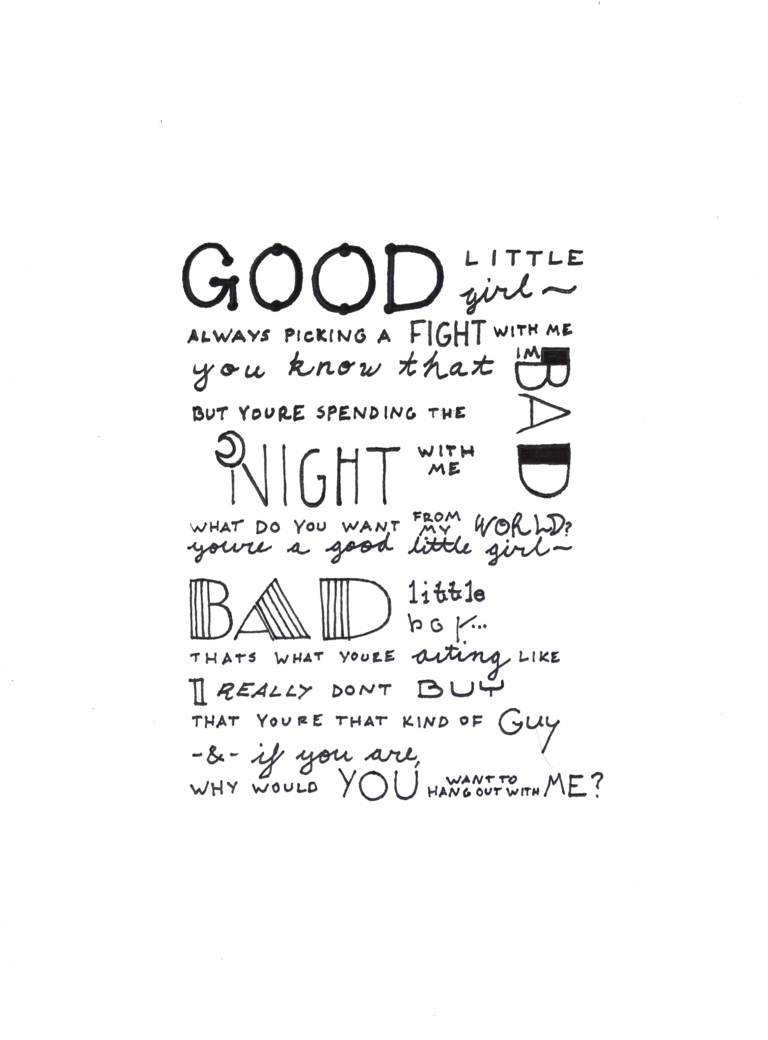 GOOD LITTLE
girl ~
ALWAYS PICKING A FIGHT WITH ME
you know that IM BAD
BUT YOURE SPENDING THE
NIGHT WITH ME
WHAT DO YOU WANT FROM MY WORLD?
youre a good little girl ~
BAD little
boy...
THATS WHAT YOURE acting LIKE
I REALLY DONT BUY
THAT YOURE THAT KIND OF Guy
-&- if you are,
WHY WOULD YOU WANT TO HANG OUT WITH ME?